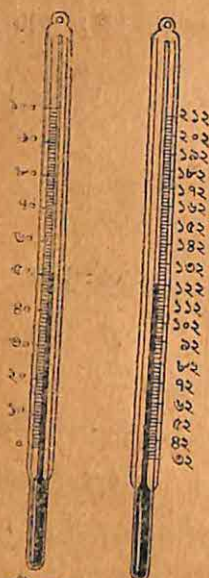 ১০০
৯০
৮০
৭০
৬০
৫০
৪০
৩০
২০
১০
০
২১২
২০২
১৯২
১৮২
১৭২
১৬২
১৫২
১৪২
১৩২
১২২
১১২
১০২
৯২
৮২
৭২
৬২
৫২
৪২
৩২